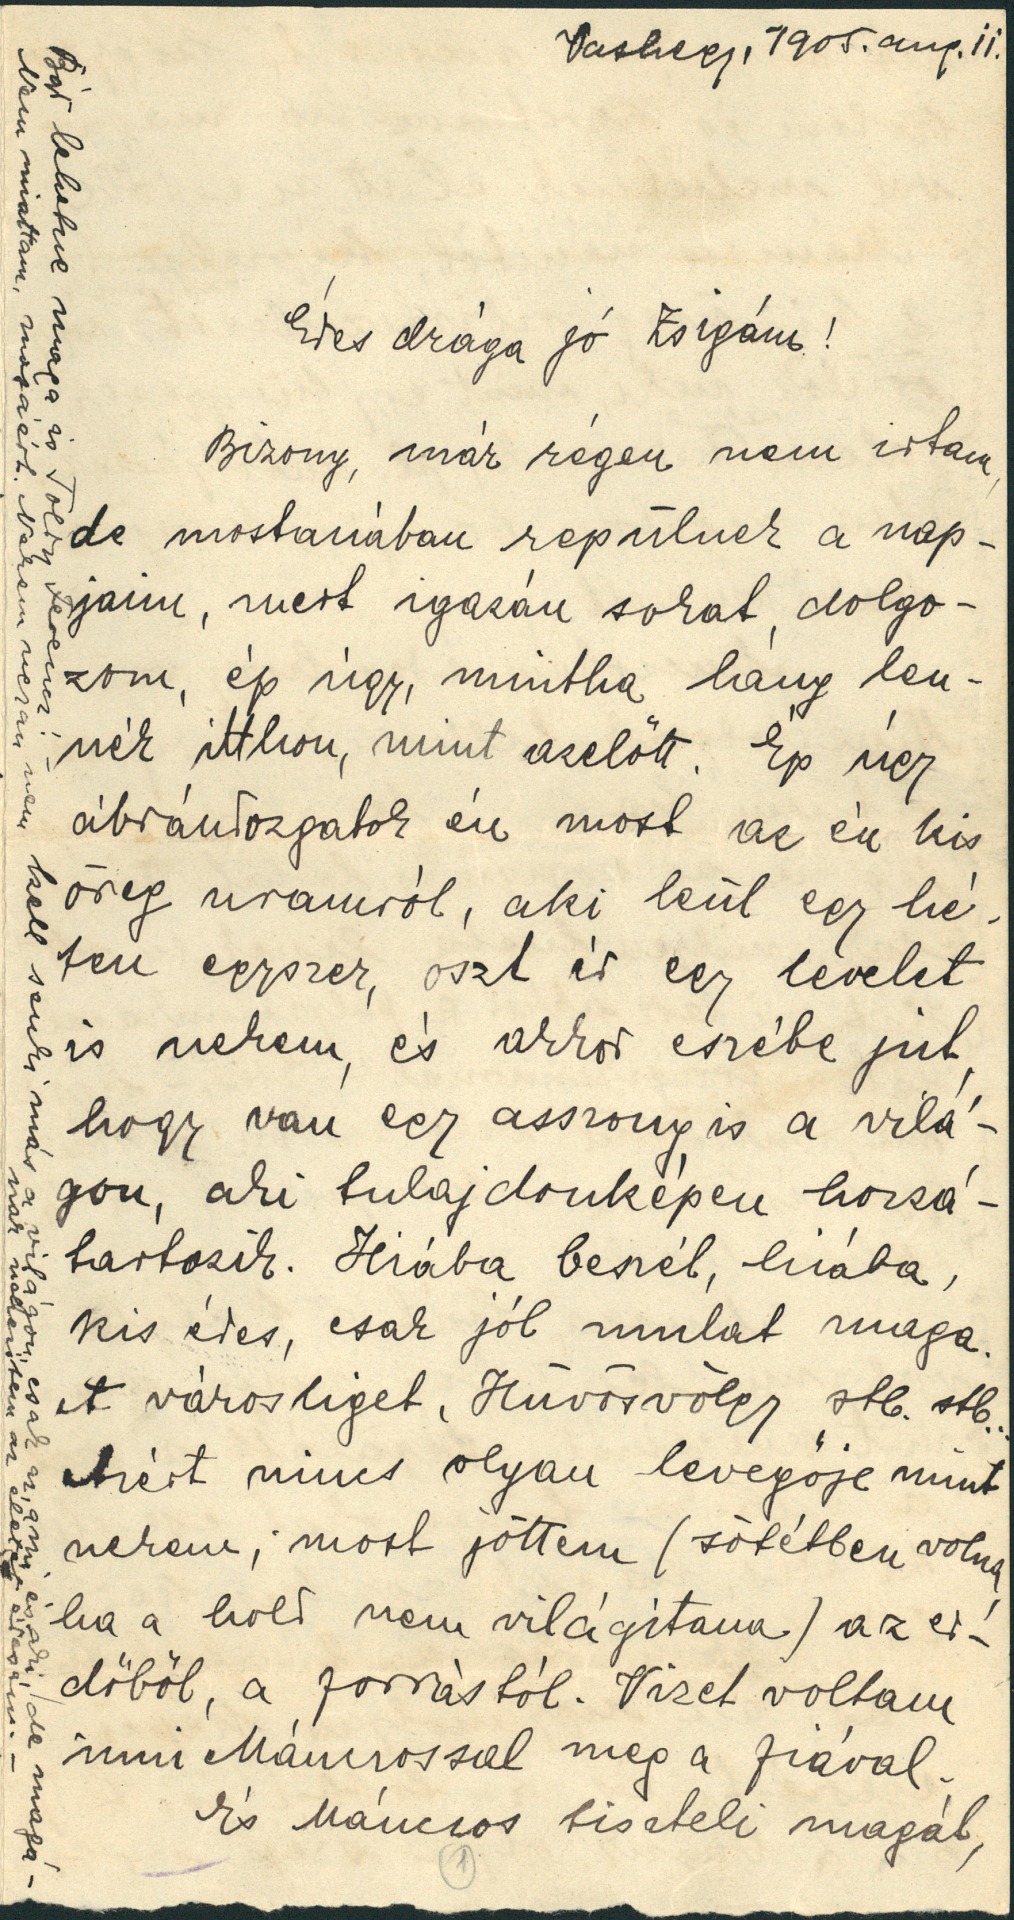 Vashegy, 1905. aug. 11.
Édes drága jó Zsigám!
Bizony, már régen nem irtam,
de mostanában repülnek a nap-
jaim, mert igazán sokat dolgo-
zom, ép úgy, mintha lány len-
nék itthon, mint azelőtt. Ép úgy
ábrándozgatok én most az én kis
öreg uramról, aki leül egy hé-
ten egyszer, oszt ir egy levelet
is nekem, és akkor eszébe jut,
hogy van egy asszony is a vilá-
gon, aki tulajdonképen hozzá-
tartozik. Hiába beszél, hiába,
kis édes, csak jól mulat maga.
A városliget, Hüvösvölgy stb. stb...
Azért nincs olyan levegője mint
nekem; most jöttem (sötétben volna,
ha a hold nem világítana) az er-
dőből, a forrástól. Vizet voltam
inni Máncrossal meg a fiával.
És Máncros tiszteli magát,
1
Báj lehetne maga is Toldy Ferencz! –
Nem miattam, magáért. Nekem ugyan nem kell senki más a világon, csak a
és aki, de magá-
nak
az életét édesám. –